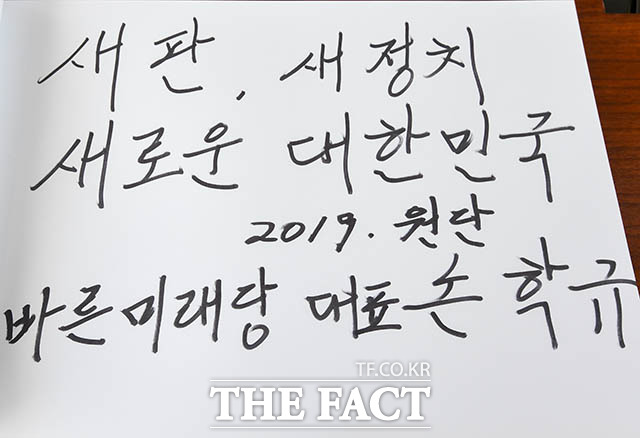 새판, 새정치
새로운 대한민국
2019. 원단
바른미래당 대표 손학규
TF.CO.KR
THE FACT